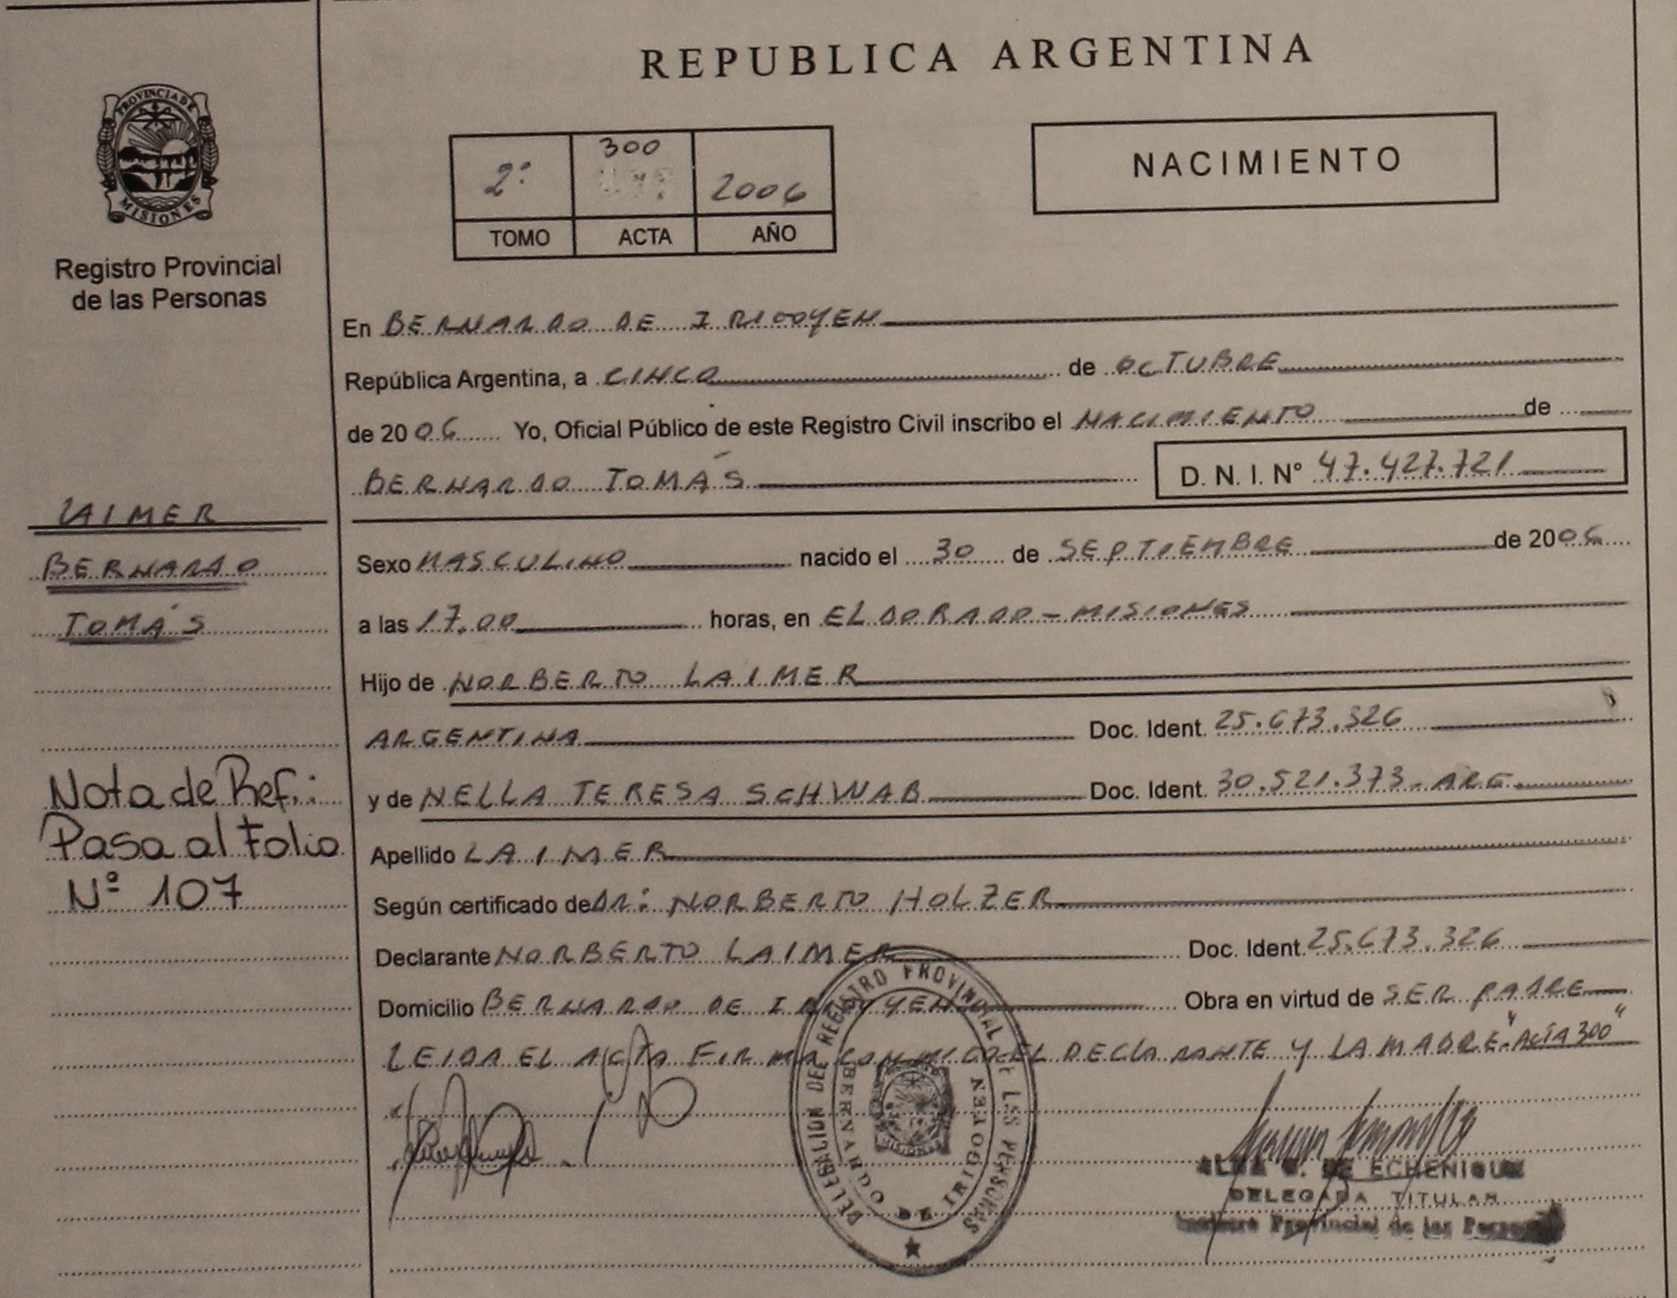 REPUBLICA ARGENTINA
PROVINCIA DE
MISIONES
Registro Provincial
de las Personas
2º 300 2006
TOMO ACTA AÑO
NACIMIENTO
En BERNARDO DE IRIGOYEN
República Argentina, a CINCO de OCTUBRE
de 2006 Yo, Oficial Público de este Registro Civil inscribo el NACIMIENTO de
BERNARDO TOMÁS D. N. I. Nº 47.427.721
LAIMER
BERNARDO
TOMÁS
Sexo MASCULINO nacido el 30 de SEPTIEMBRE de 2006
a las 17.00 horas, en ELDORADO - MISIONES
Hijo de NORBERTO LAIMER
ARGENTINA Doc. Ident. 25.673.326
y de NELLA TERESA SCHWAB Doc. Ident. 30.521.373 - ARG.
Nota de Ref.:
Pasa al Folio
Nº 107
Apellido LAIMER
Según certificado de Dr: NORBERTO HOLZER
Declarante NORBERTO LAIMER Doc. Ident. 25.673.326
Domicilio BERNARDO DE IRIGOYEN Obra en virtud de SER PADRE
LEIDA EL ACTA FIRMA CONMIGO EL DECLARANTE Y LA MADRE "ACTA 300"
DELEGACION DEL REGISTRO PROVINCIAL DE LAS PERSONAS
BERNARDO DE IRIGOYEN
DE ECHENIQUE
DELEGADA TITULAR
Provincial de las Personas